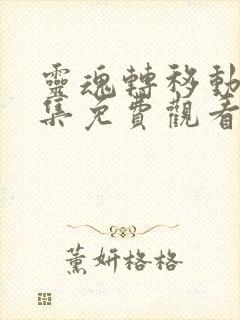 靈魂轉移動
集免費觀看
薰妍格格